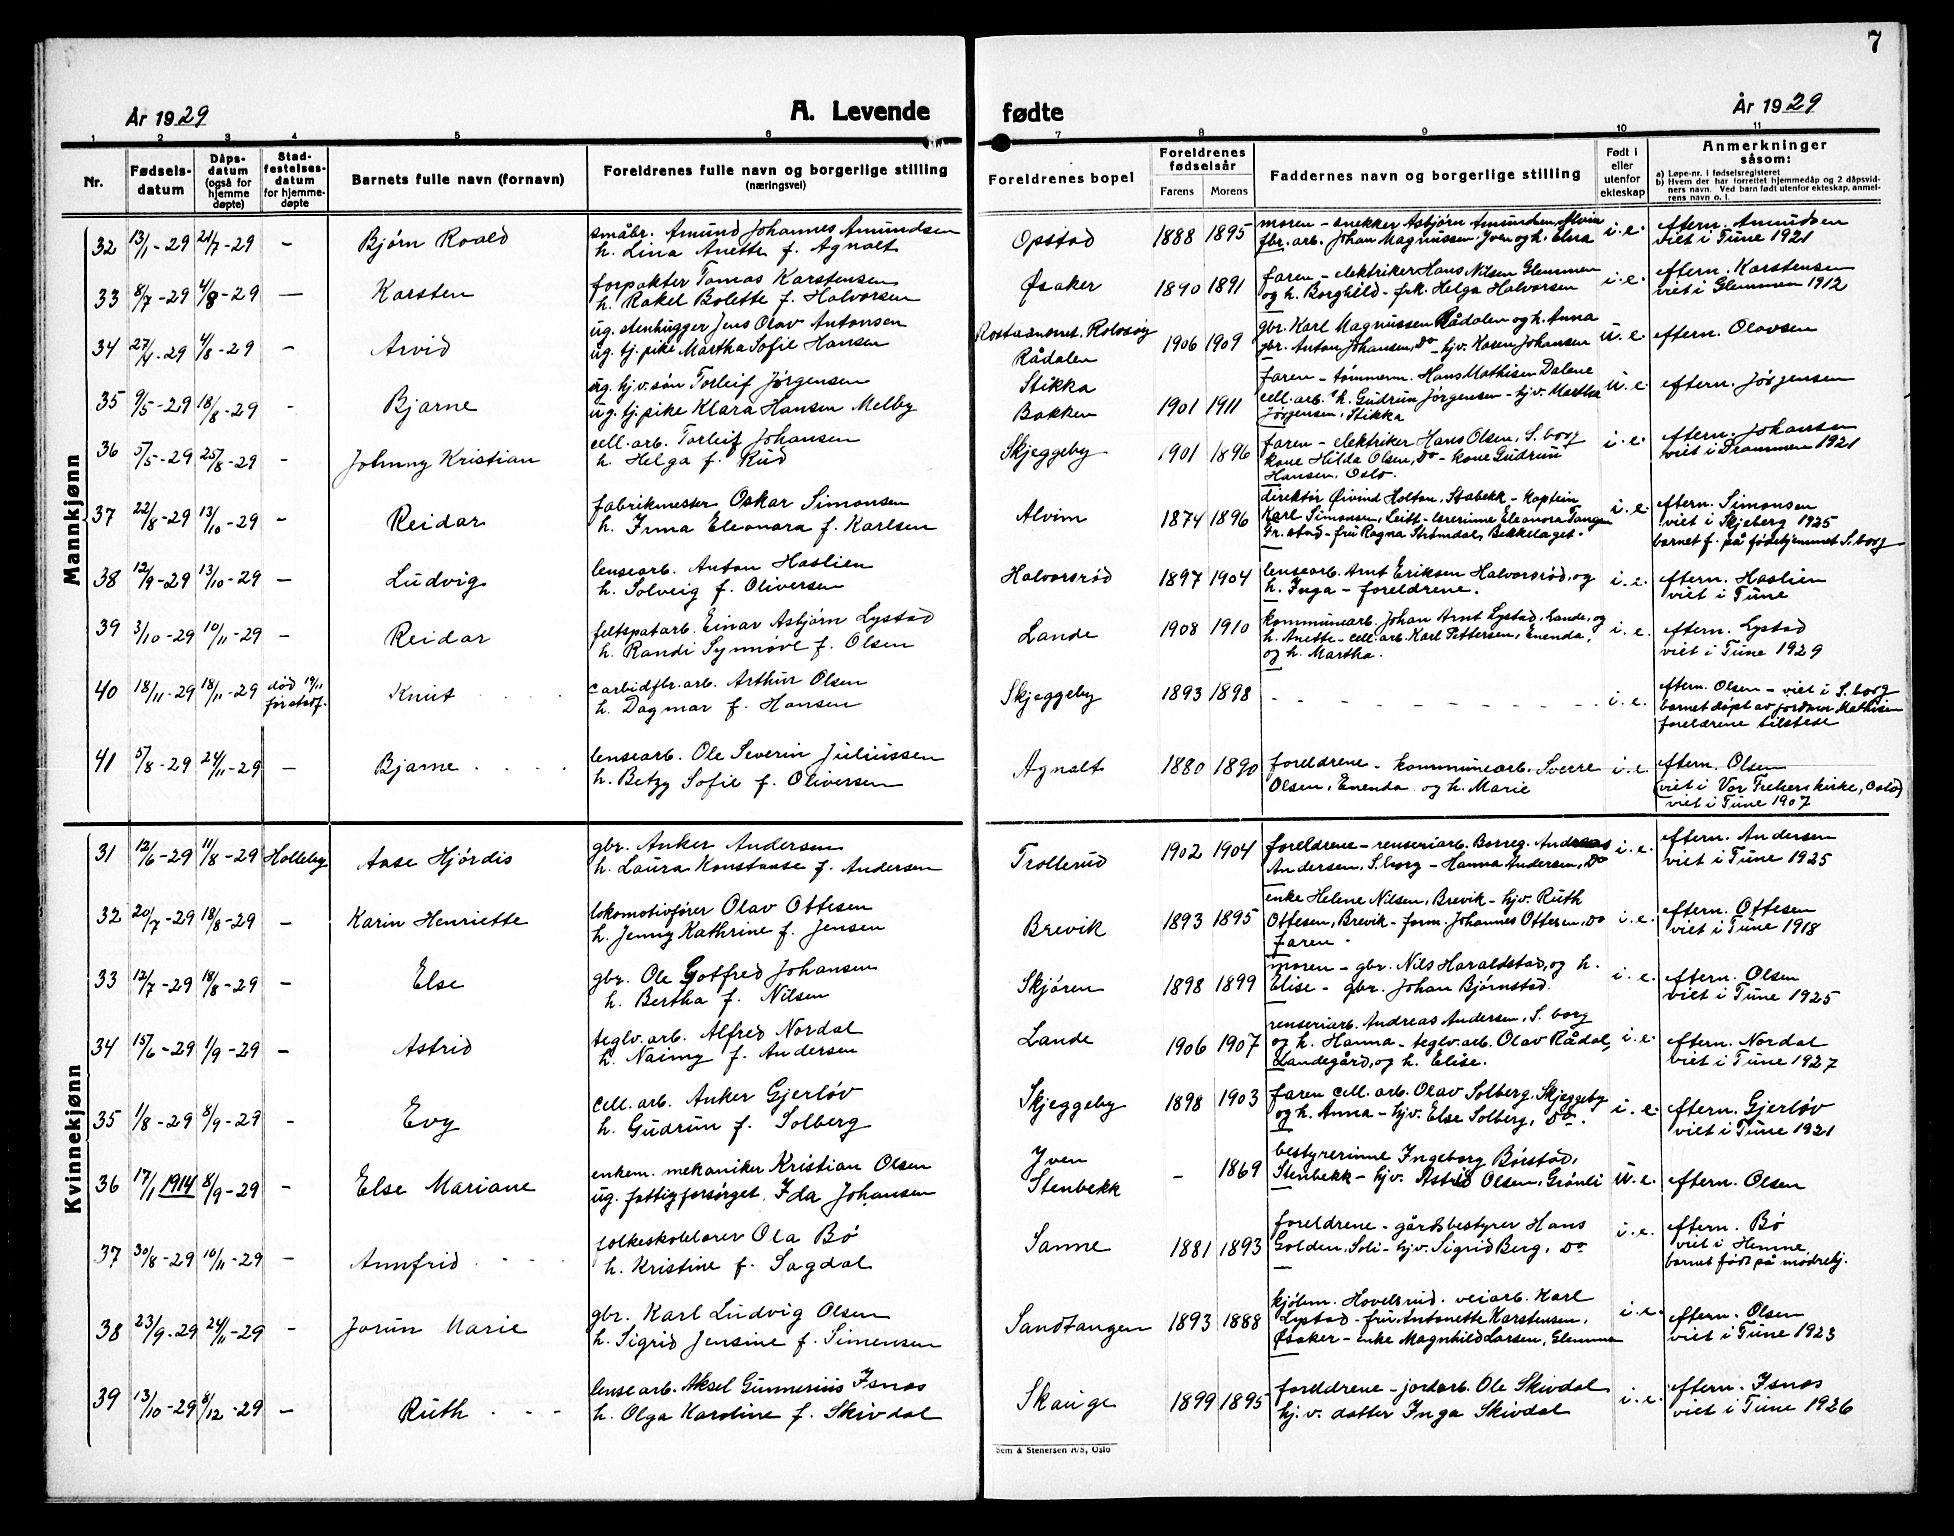 7
År 1929 A. Levende fødte År 1929
1 2 3 4 5 6 7 8 9 10 11
Nr. Fødsels-datum Dåps-datum (også for hjemme døpte) Stad-festelses-datum for hjemme-døpte Barnets fulle navn (fornavn) Foreldrenes fulle navn og borgerlige stilling (næringsvei) Foreldrenes bopel Foreldrenes fødselsår Farens Morens Faddernes navn og borgerlige stilling Født i eller utenfor ekteskap Anmerkninger såsom: a) Løpe-nr. i fødselsregisteret b) Hvem der har forrettet hjemmedåp og 2 dåpsvidners navn. Ved barn født utenfor ekteskap, anmelrens navn o. l.
Mannkjønn
32 13/1-29 21/7-29 – Bjørn Roald småbr. Amund Johannes Amundsen
h. Lina Anette f. Agnalt
Opstad 1888 1895 moren – snekker Asbjørn Amundsen, Alvim
fbr. arb. Johan Magnussen Yven og h. Elna
i. e. eftern. Amundsen
viet i Tune 1921
33 8/7-29 4/8-29 — Karsten forpakter Tomas Karstensen
h. Rakel Bolette f. Halvorsen
Øsaker 1890 1891 faren – elektriker Hans Nilsen Glemmen
og h. Borghild – frk. Helga Halvorsen
i. e. eftern. Karstensen
viet i Glemmen 1912
34 27/4-29 4/8-29 – Arvid ug. stenhugger Jens Olav Antonsen
ug. tj. pike Martha Sofie Hansen
Rolvsøy
Rådalen
1906 1909 gbr. Karl Magnussen Rådalen og h. Anna
gbr. Anton Johansen, Do – hjv. Karen Johansen
u. e. eftern. Olavsen
35 9/5-29 18/8-29 – Bjarne ug. hjv. søn Torleif Jørgensen
ug. tj. pike Klara Hansen Melby
Stikka
Bakken
1901 1911 faren – tømmerm. Hans Mathisen Dalene
cell. arb. h. Gudrun Jørgensen – hjv. Martha
Jørgensen, Stikka
u. e. eftern. Jørgensen
36 5/5-29 25/8-29 – Johnny Kristian cell. arb. Torleif Johansen
h. Helga f. Rud
Skjeggeby 1901 1896 faren – elektriker Hans Olsen, S. borg
kone Hilda Olsen, Do – kone Gudrun
Hansen, Oslo.
i. e. eftern. Johansen
viet i Drammen 1921
37 22/8-29 13/10-29 – Reidar fabrikmester Oskar Simonsen
h. Irma Eleonora f. Karlsen
Alvim 1874 1896 direktør Øivind Holtan, Stabekk – kaptein
Karl Simonsen, – lærerinne Eleonora Tangen
Fr. stad – fru Ragna Strømdal, Bekkelaget.
i. e. eftern. Simonsen
viet i Skjeberg 1925
barnet f. på fødehjemmet S. borg
38 12/9-29 13/10-29 – Ludvig lensearb. Anton Haslien
h. Solveig f. Oliversen
Halvorsrød 1897 1904 lensearb. Arnt Eriksen Halvorsrød, og
h. Inga – foreldrene.
i. e. eftern. Haslien
viet i Tune
39 3/10-29 10/11-29 – Reidar feltspatarb. Einar Asbjørn Lystad
h. Randi Synnøve f. Olsen
Lande 1908 1910 kommunearb. Johan Arnt Lystad, Lande, og
h. Anette – cell. arb. Karl Pettersen, Enenda,
og h. Martha.
i. e. eftern. Lystad
viet i Tune 1929
40 18/11-29 18/11-29 død 19/11 før stadf. Knut carbidfbr. arb. Arthur Olsen
h. Dagmar f. Hansen
Skjeggeby 1893 1898 – – – – – – – i. e. eftern. Olsen – viet i S. borg
barnet døpt av jordmor Mathisen
foreldrene tilstede
41 5/8-29 24/11-29 – Bjarne lensearb. Ole Severin Juliussen
h. Betzy Sofie f. Oliversen
Agnalt 1880 1890 foreldrene – kommunearb. Sverre
Olsen, Enenda og h. Marie
i. e. eftern. Olsen
(viet i Vor Frelsers kirke, Oslo)
viet i Tune 1907
Kvinnekjønn
31 12/6-29 11/8-29 Holleby Aase Hjørdis gbr. Anker Andersen
h. Laura Konstanse f. Andersen
Trollerud 1902 1904 foreldrene – renseriarb. Borreg. Andreas
Andersen, S. borg – Hanna Andersen, Do
i. e. eftern. Andersen
viet i Tune 1925
32 20/7-29 18/8-29 – Karin Henriette lokomotivfører Olav Ottesen
h. Jenny Kathrine f. Jensen
Brevik 1893 1895 enke Helene Nilsen, Brevik – hjv. Ruth
Ottesen, Brevik – form. Johannes Ottesen, Do
faren.
i. e. eftern. Ottesen
viet i Tune 1918
33 12/7-29 18/8-29 – Else gbr. Ole Gotfred Johansen
h. Bertha f. Nilsen
Skjøren 1898 1899 moren – gbr. Nils Haraldstad, og h.
Elise – gbr. Johan Bjørnstad.
i. e. eftern. Olsen
viet i Tune 1925
34 15/6-29 1/9-29 – Astrid teglv. arb. Alfred Nordal
h. Naimy f. Andersen
Lande 1906 1907 renseriarb. Andreas Andersen, S. borg
og h. Hanna – teglv. arb. Olav Rådal,
Landegård, og h. Elise.
i. e. eftern. Nordal
viet i Tune 1927
35 1/8-29 8/9-29 – Evy cell. arb. Anker Gjerløv
h. Gudrun f. Solberg
Skjeggeby 1898 1903 faren cell. arb. Olav Solberg, Skjeggeby
og h. Anna – hjv. Else Solberg, Do.
i. e. eftern. Gjerløv
viet i Tune 1921
36 17/1 1914 8/9-29 – Else Mariane enkem. mekaniker Kristian Olsen
ug. fattigforsørget, Ida Johansen
Yven
Stenbekk
– 1869 bestyrerinne Ingeborg Børstad,
Stenbekk – hjv. Astrid Olsen, Grønli
u. e. eftern. Olsen
37 30/8-29 10/11-29 – Annfrid folkeskolelærer Ola Bø
h. Kristine f. Sagdal
Sanne 1881 1893 foreldrene – gårdsbestyrer Hans
Golden, Soli – hjv. Sigrid Berg, Do
i. e. eftern. Bø
viet i Hemne
barnet født på mødrehj.
38 23/9-29 24/11-29 – Jorun Marie gbr. Karl Ludvig Olsen
h. Sigrid Jensine f. Simensen
Sandtangen 1893 1888 kjøbm. Hovelsrud. veiarb. Karl
Lystad – fru Antonette Karstensen,
Øsaker – enke Magnhild Larsen, Glemmen
i. e. eftern. Olsen
viet i Tune 1923
39 13/10-29 8/12-29 – Ruth lensearb. Aksel Gunnerius Isnes
h. Olga Karoline f. Skivdal
Skauge 1899 1895 foreldrene – jordarb. Ole Skivdal
hj. v. datter Inga Skivdal
i. e. eftern. Isnes
viet i Tune 1926
Sem & Stenersen A/S, Oslo